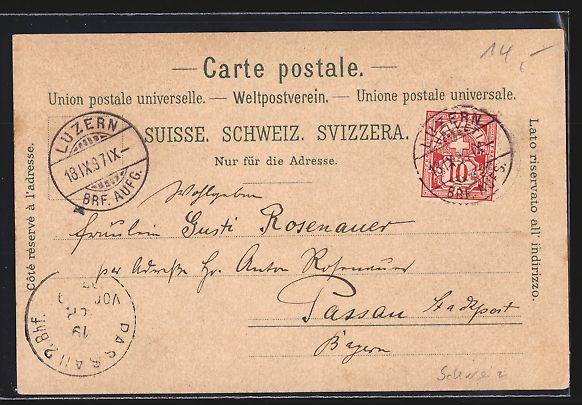 14,-
— Carte postale. —
Union postale universelle. — Weltpostverein. — Unione postale universale.
SUISSE. SCHWEIZ. SVIZZERA.
Nur für die Adresse.
Côté réservé à l'adresse.
Lato riservato all' indirizzo.
LUZERN
18.IX.97.IX-
BRF. AUFG.
LUZERN
10
Wohlgeboren
Fräulein Gusti Rosenauer
per Adreße Hr. Anton Rosenauer
Passau Stadtpost
Bayern
PASSAU 2 Bhf.
19
VOR
Schweiz